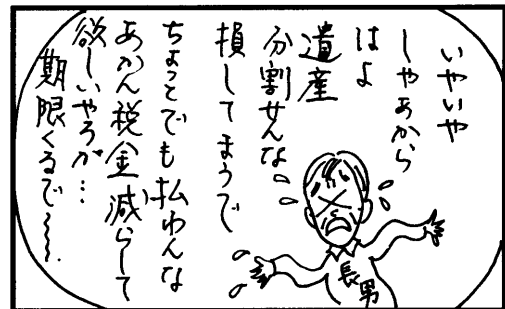 いやいや
しやあから
はよ
遺産
分割せんな
損してまうで
ちょっとでも払わんな
あかん税金減らして
欲しいやろが…
期限くるで〜〜。
長男